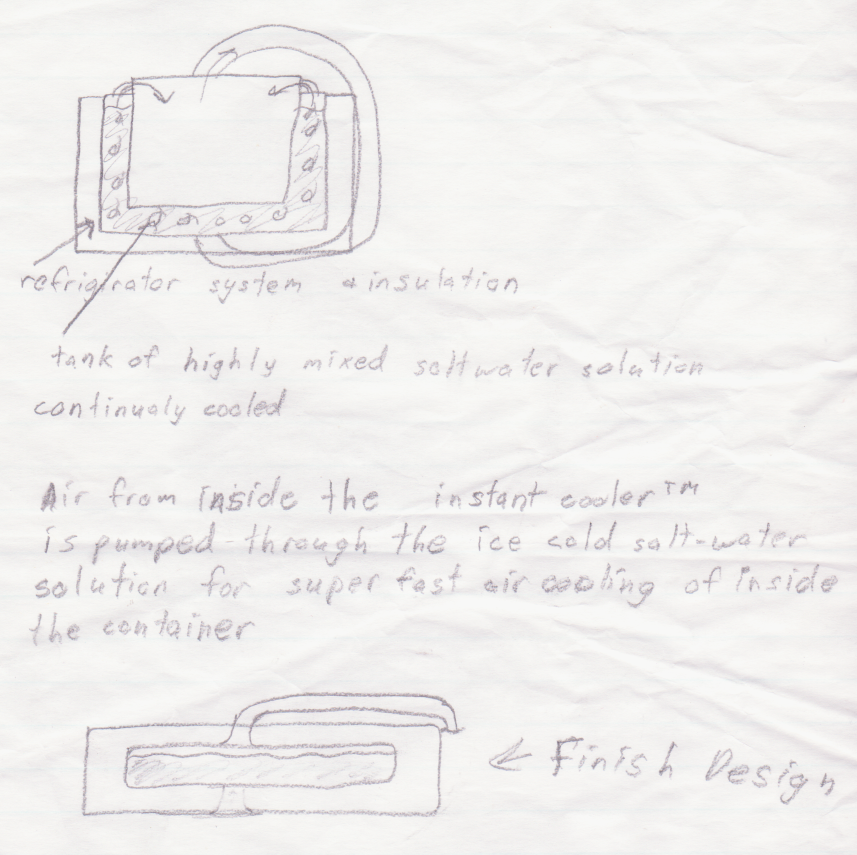 refrigirator system & insulation
tank of highly mixed saltwater solution
continualy cooled
Air from inside the instant cooler™
is pumped through the ice cold salt-water
solution for super fast air cooling of inside
the container
← Finish Design